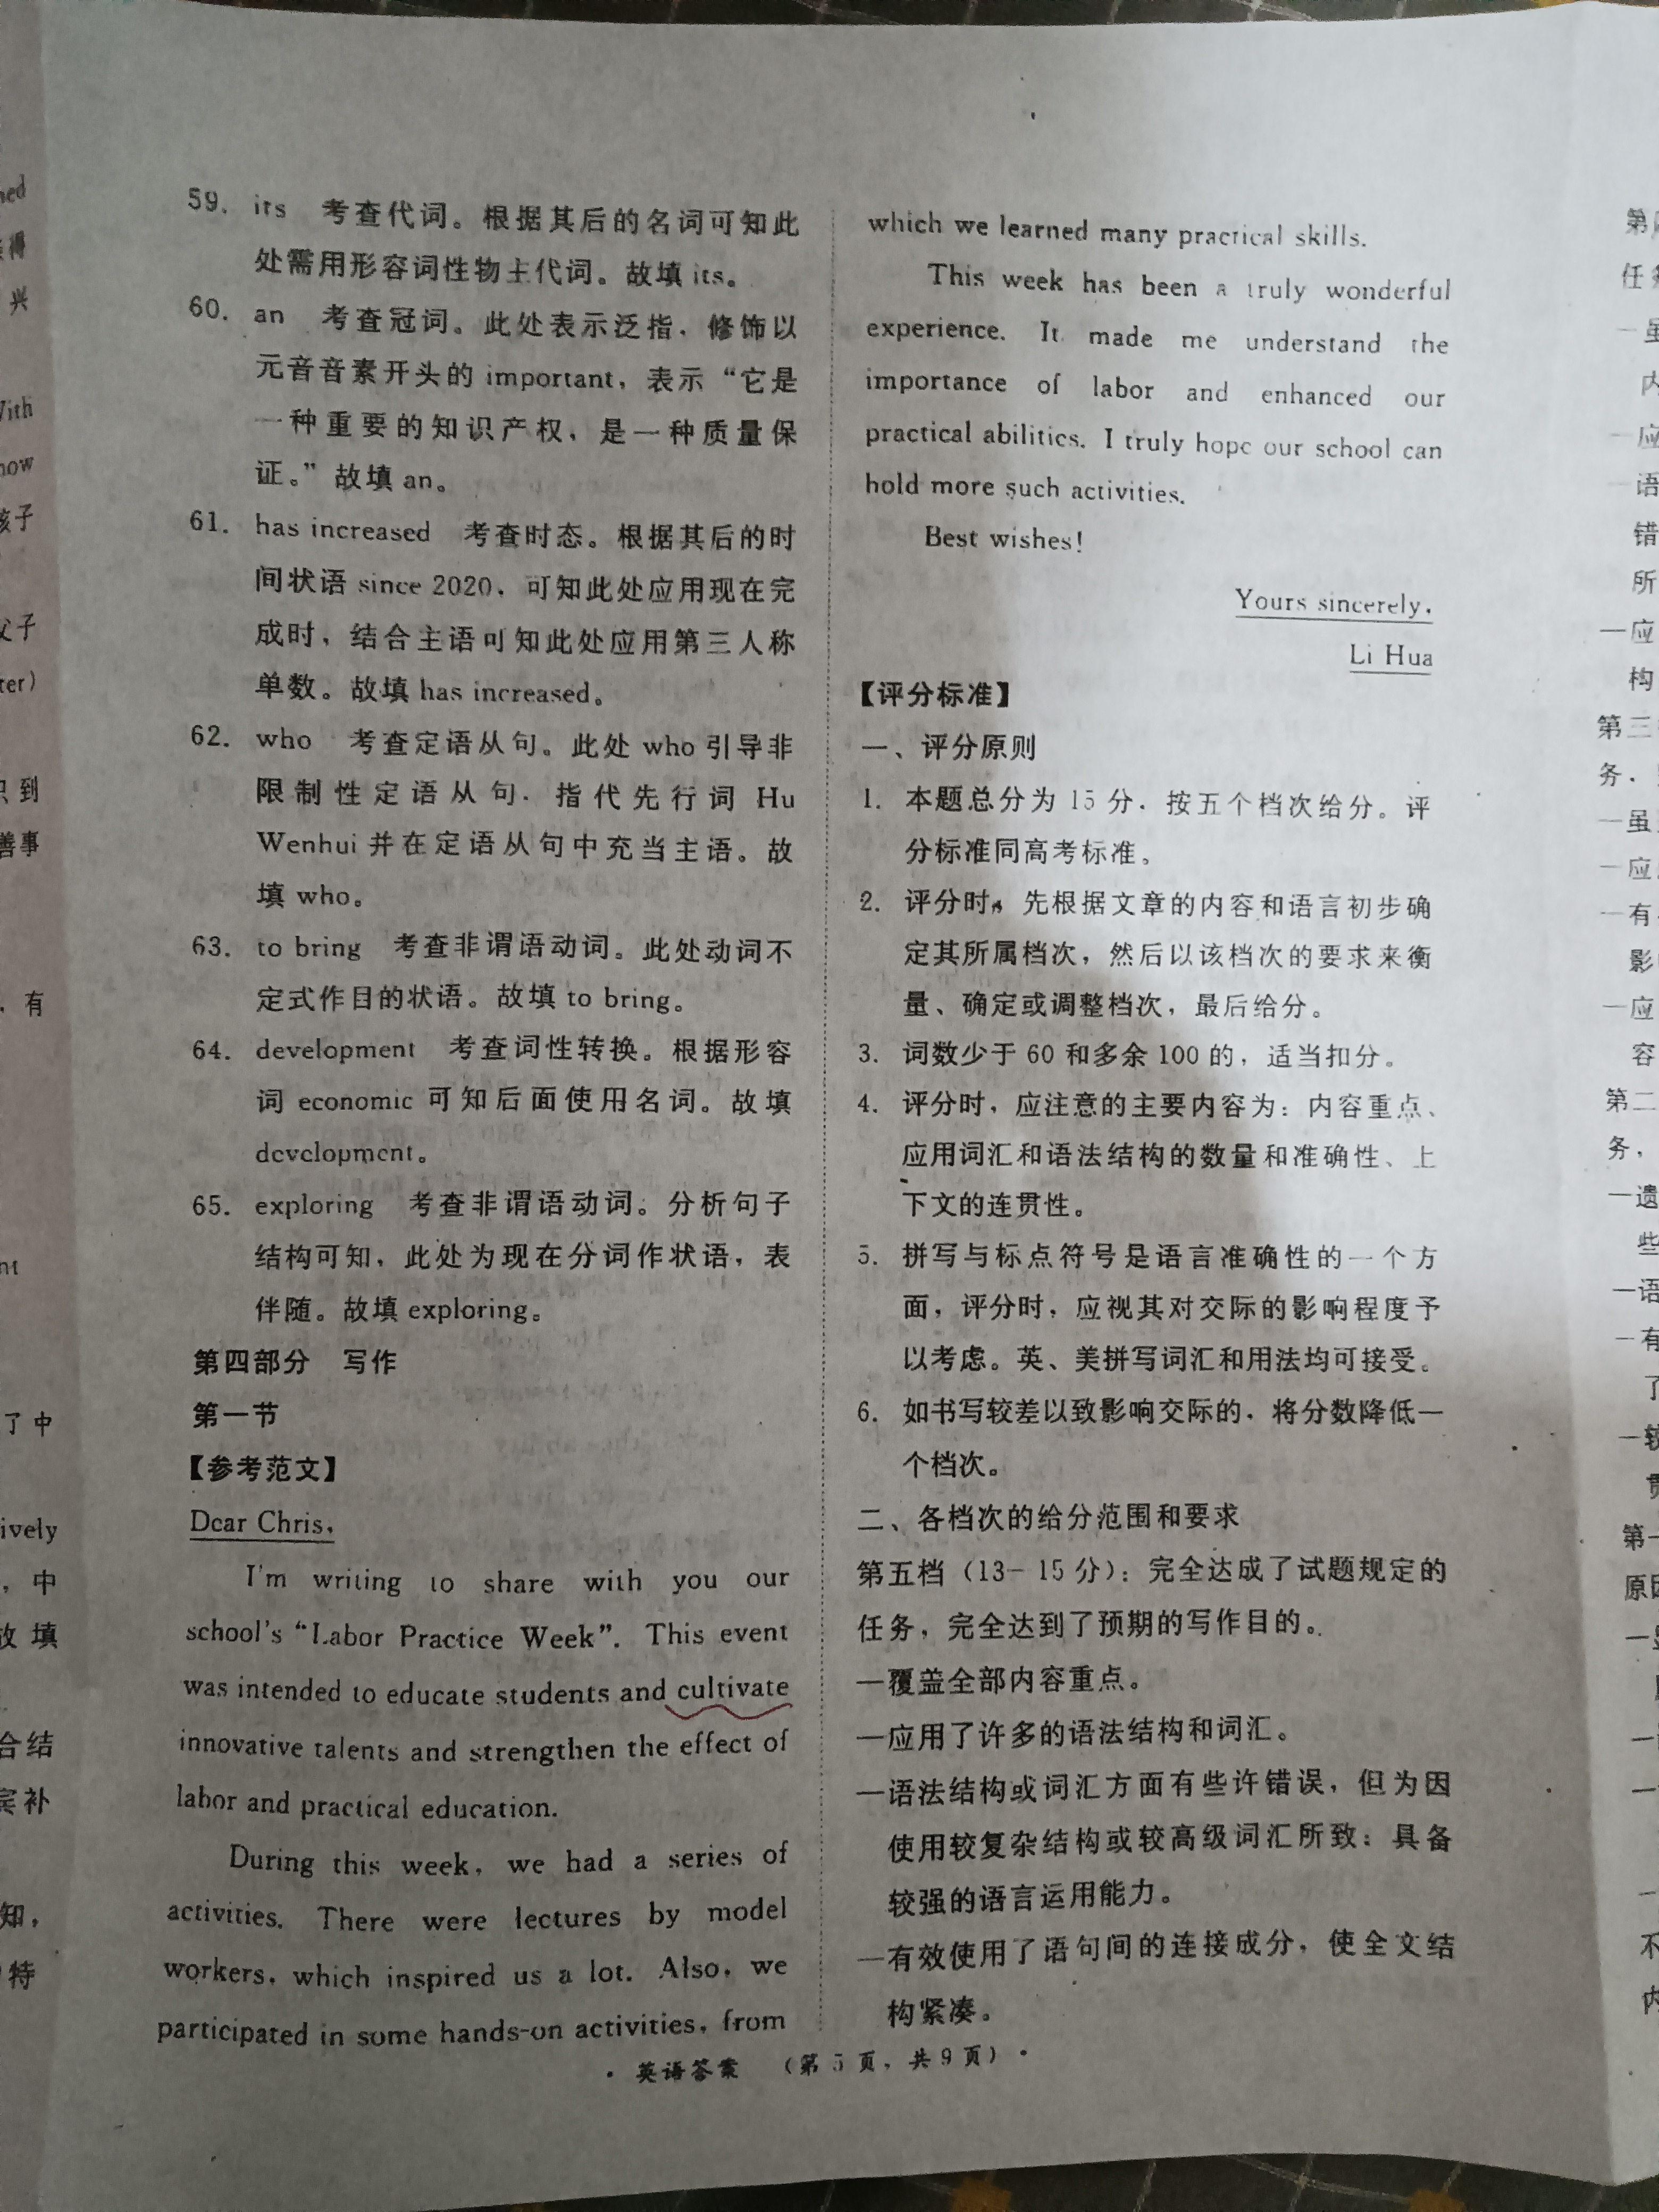 59. its 考查代词。根据其后的名词可知此
处需用形容词性物主代词。故填 its。
60. an 考查冠词。此处表示泛指，修饰以
元音音素开头的 important，表示“它是
一种重要的知识产权，是一种质量保
证。”故填 an。
61. has increased 考查时态。根据其后的时
间状语 since 2020，可知此处应用现在完
成时，结合主语可知此处应用第三人称
单数。故填 has increased。
62. who 考查定语从句。此处 who 引导非
限制性定语从句，指代先行词 Hu
Wenhui 并在定语从句中充当主语。故
填 who。
63. to bring 考查非谓语动词。此处动词不
定式作目的状语。故填 to bring。
64. development 考查词性转换。根据形容
词 economic 可知后面使用名词。故填
development。
65. exploring 考查非谓语动词。分析句子
结构可知，此处为现在分词作状语，表
伴随。故填 exploring。
第四部分 写作
第一节
【参考范文】
Dear Chris,
I'm writing to share with you our
school's “Labor Practice Week”. This event
was intended to educate students and cultivate
innovative talents and strengthen the effect of
labor and practical education.
During this week, we had a series of
activities. There were lectures by model
workers, which inspired us a lot. Also, we
participated in some hands-on activities, from
which we learned many practical skills.
This week has been a truly wonderful
experience. It made me understand the
importance of labor and enhanced our
practical abilities. I truly hope our school can
hold more such activities.
Best wishes!
Yours sincerely,
Li Hua
【评分标准】
一、评分原则
1. 本题总分为 15 分，按五个档次给分。评
分标准同高考标准。
2. 评分时，先根据文章的内容和语言初步确
定其所属档次，然后以该档次的要求来衡
量、确定或调整档次，最后给分。
3. 词数少于 60 和多余 100 的，适当扣分。
4. 评分时，应注意的主要内容为：内容重点、
应用词汇和语法结构的数量和准确性、上
下文的连贯性。
5. 拼写与标点符号是语言准确性的一个方
面，评分时，应视其对交际的影响程度予
以考虑。英、美拼写词汇和用法均可接受。
6. 如书写较差以致影响交际的，将分数降低一
个档次。
二、各档次的给分范围和要求
第五档（13- 15 分）：完全达成了试题规定的
任务，完全达到了预期的写作目的。
—覆盖全部内容重点。
—应用了许多的语法结构和词汇。
—语法结构或词汇方面有些许错误，但为因
使用较复杂结构或较高级词汇所致；具备
较强的语言运用能力。
—有效使用了语句间的连接成分，使全文结
构紧凑。
· 英语答案 （第 5 页，共 9 页） ·